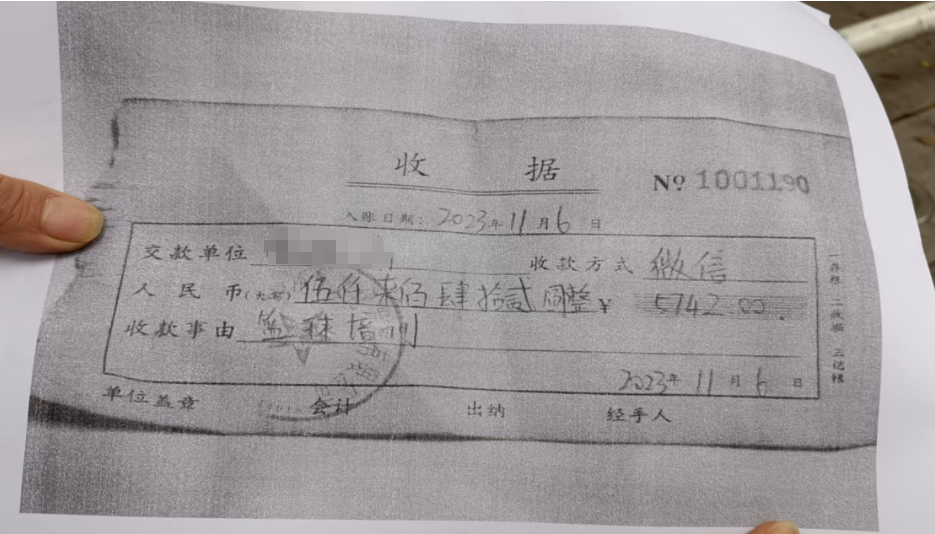 收 据
№ 1001190
入账日期: 2023年11月6日
交款单位 收款方式 微信
人民币(大写) 伍仟柒佰肆拾贰圆整 ¥ 5742.00
收款事由 篮球培训
2023年11月6日
单位盖章 会计 出纳 经手人
一存根 二收据 三记账